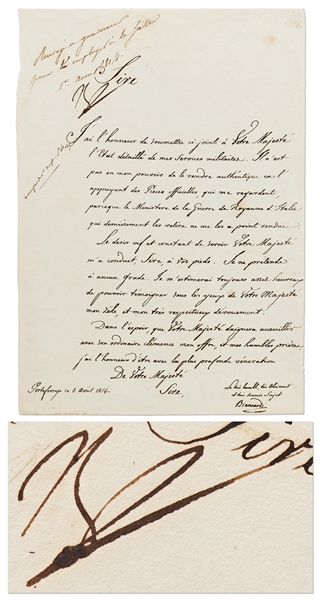 Renvoyé au gouverneur
pour l'employer à la suite
1er Août 1814
N
Sire
J'ai l'honneur de soumettre ci joint à Vôtre Majesté
l'Etat détaillé de mes Services militaires. Il n'est
pas en mon pouvoir de le rendre authentique en l'
appuyant des Pieces officielles qui me regardent,
parceque le Ministere de la Guerre du Royaume d'Italie
qui dernierement les retira, ne me les a point rendues.
Le desir vif et constant de servir Vôtre Majesté
m'a conduit, Sire, à vos pieds. Je ne prétends
à aucun grade. Je m'estimerai toujours assez heureux
de pouvoir témoigner sous les yeux de Vôtre Majesté
mon Zèle, et mon très respectueux dévouement.
Dans l'espoir, que Vôtre Majesté daignera accueillir
avec son ordinaire clémence mon offre, et mes humbles prières
j'ai l'honneur d'être avec la plus profonde vénération
De Vôtre Majesté
Sire,
Portoferrajo ce 1. Août 1814.
Le très humble, très Obeissant
et très soumis Sujet
N
Sire